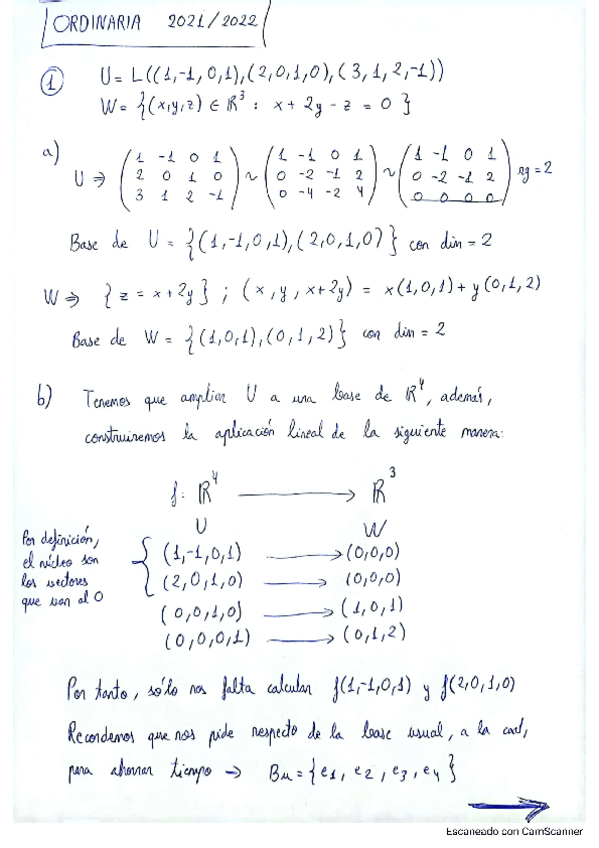 ORDINARIA 2021/2022
1 U = L((1,-1,0,1),(2,0,1,0),(3,1,2,-1))
W = {(x,y,z) ∈ ℝ³ : x + 2y - z = 0}
a)
U ⇒ (1 -1 0 1 / 2 0 1 0 / 3 1 2 -1) ~ (1 -1 0 1 / 0 -2 -1 2 / 0 -4 -2 4) ~ (1 -1 0 1 / 0 -2 -1 2 / 0 0 0 0) rg = 2
Base de U = {(1,-1,0,1),(2,0,1,0)} con dim = 2
W ⇒ {z = x+2y} ; (x, y, x+2y) = x(1,0,1) + y(0,1,2)
Base de W = {(1,0,1),(0,1,2)} con dim = 2
b) Tenemos que ampliar U a una base de ℝ⁴, además,
construiremos la aplicación lineal de la siguiente manera:
f: ℝ⁴ → ℝ³
U W
Por definición,
el núcleo son
los vectores
que van al 0
(1,-1,0,1) → (0,0,0)
(2,0,1,0) → (0,0,0)
(0,0,1,0) → (1,0,1)
(0,0,0,1) → (0,1,2)
Por tanto, sólo nos falta calcular f(1,-1,0,1) y f(2,0,1,0)
Recordemos que nos pide respecto de la base usual, a la cual,
para ahorrar tiempo → Bu = {e1, e2, e3, e4}
Escaneado con CamScanner